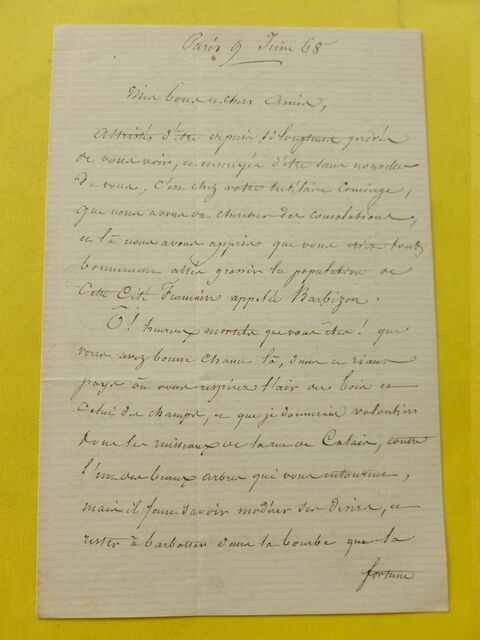 Paris 9 Juin 68
Mes bons et chers Amis,
Attristés d'être depuis si longtems privés
de vous voir, et ennuyés d'être sans nouvelles
de vous, c'est chez votre tutélaire Concierge,
que nous avons été chercher des consolations,
et là nous avons appris que vous étiez tout
bonnement allés grossir la population de
Cette Cité appelée Barbizon.
Ô! heureux mortels que vous êtes! que
vous avez bonne chance là, dans ce riant
pays où vous respirez l'air des bois et
celui des champs, et que je donnerais volontiers
tous les ruisseaux de la rue de Calais, contre
l'un des beaux arbres qui vous entourent,
mais il faut savoir modérer ses désirs, et
rester à barbotter dans la bourbe que la
fortune